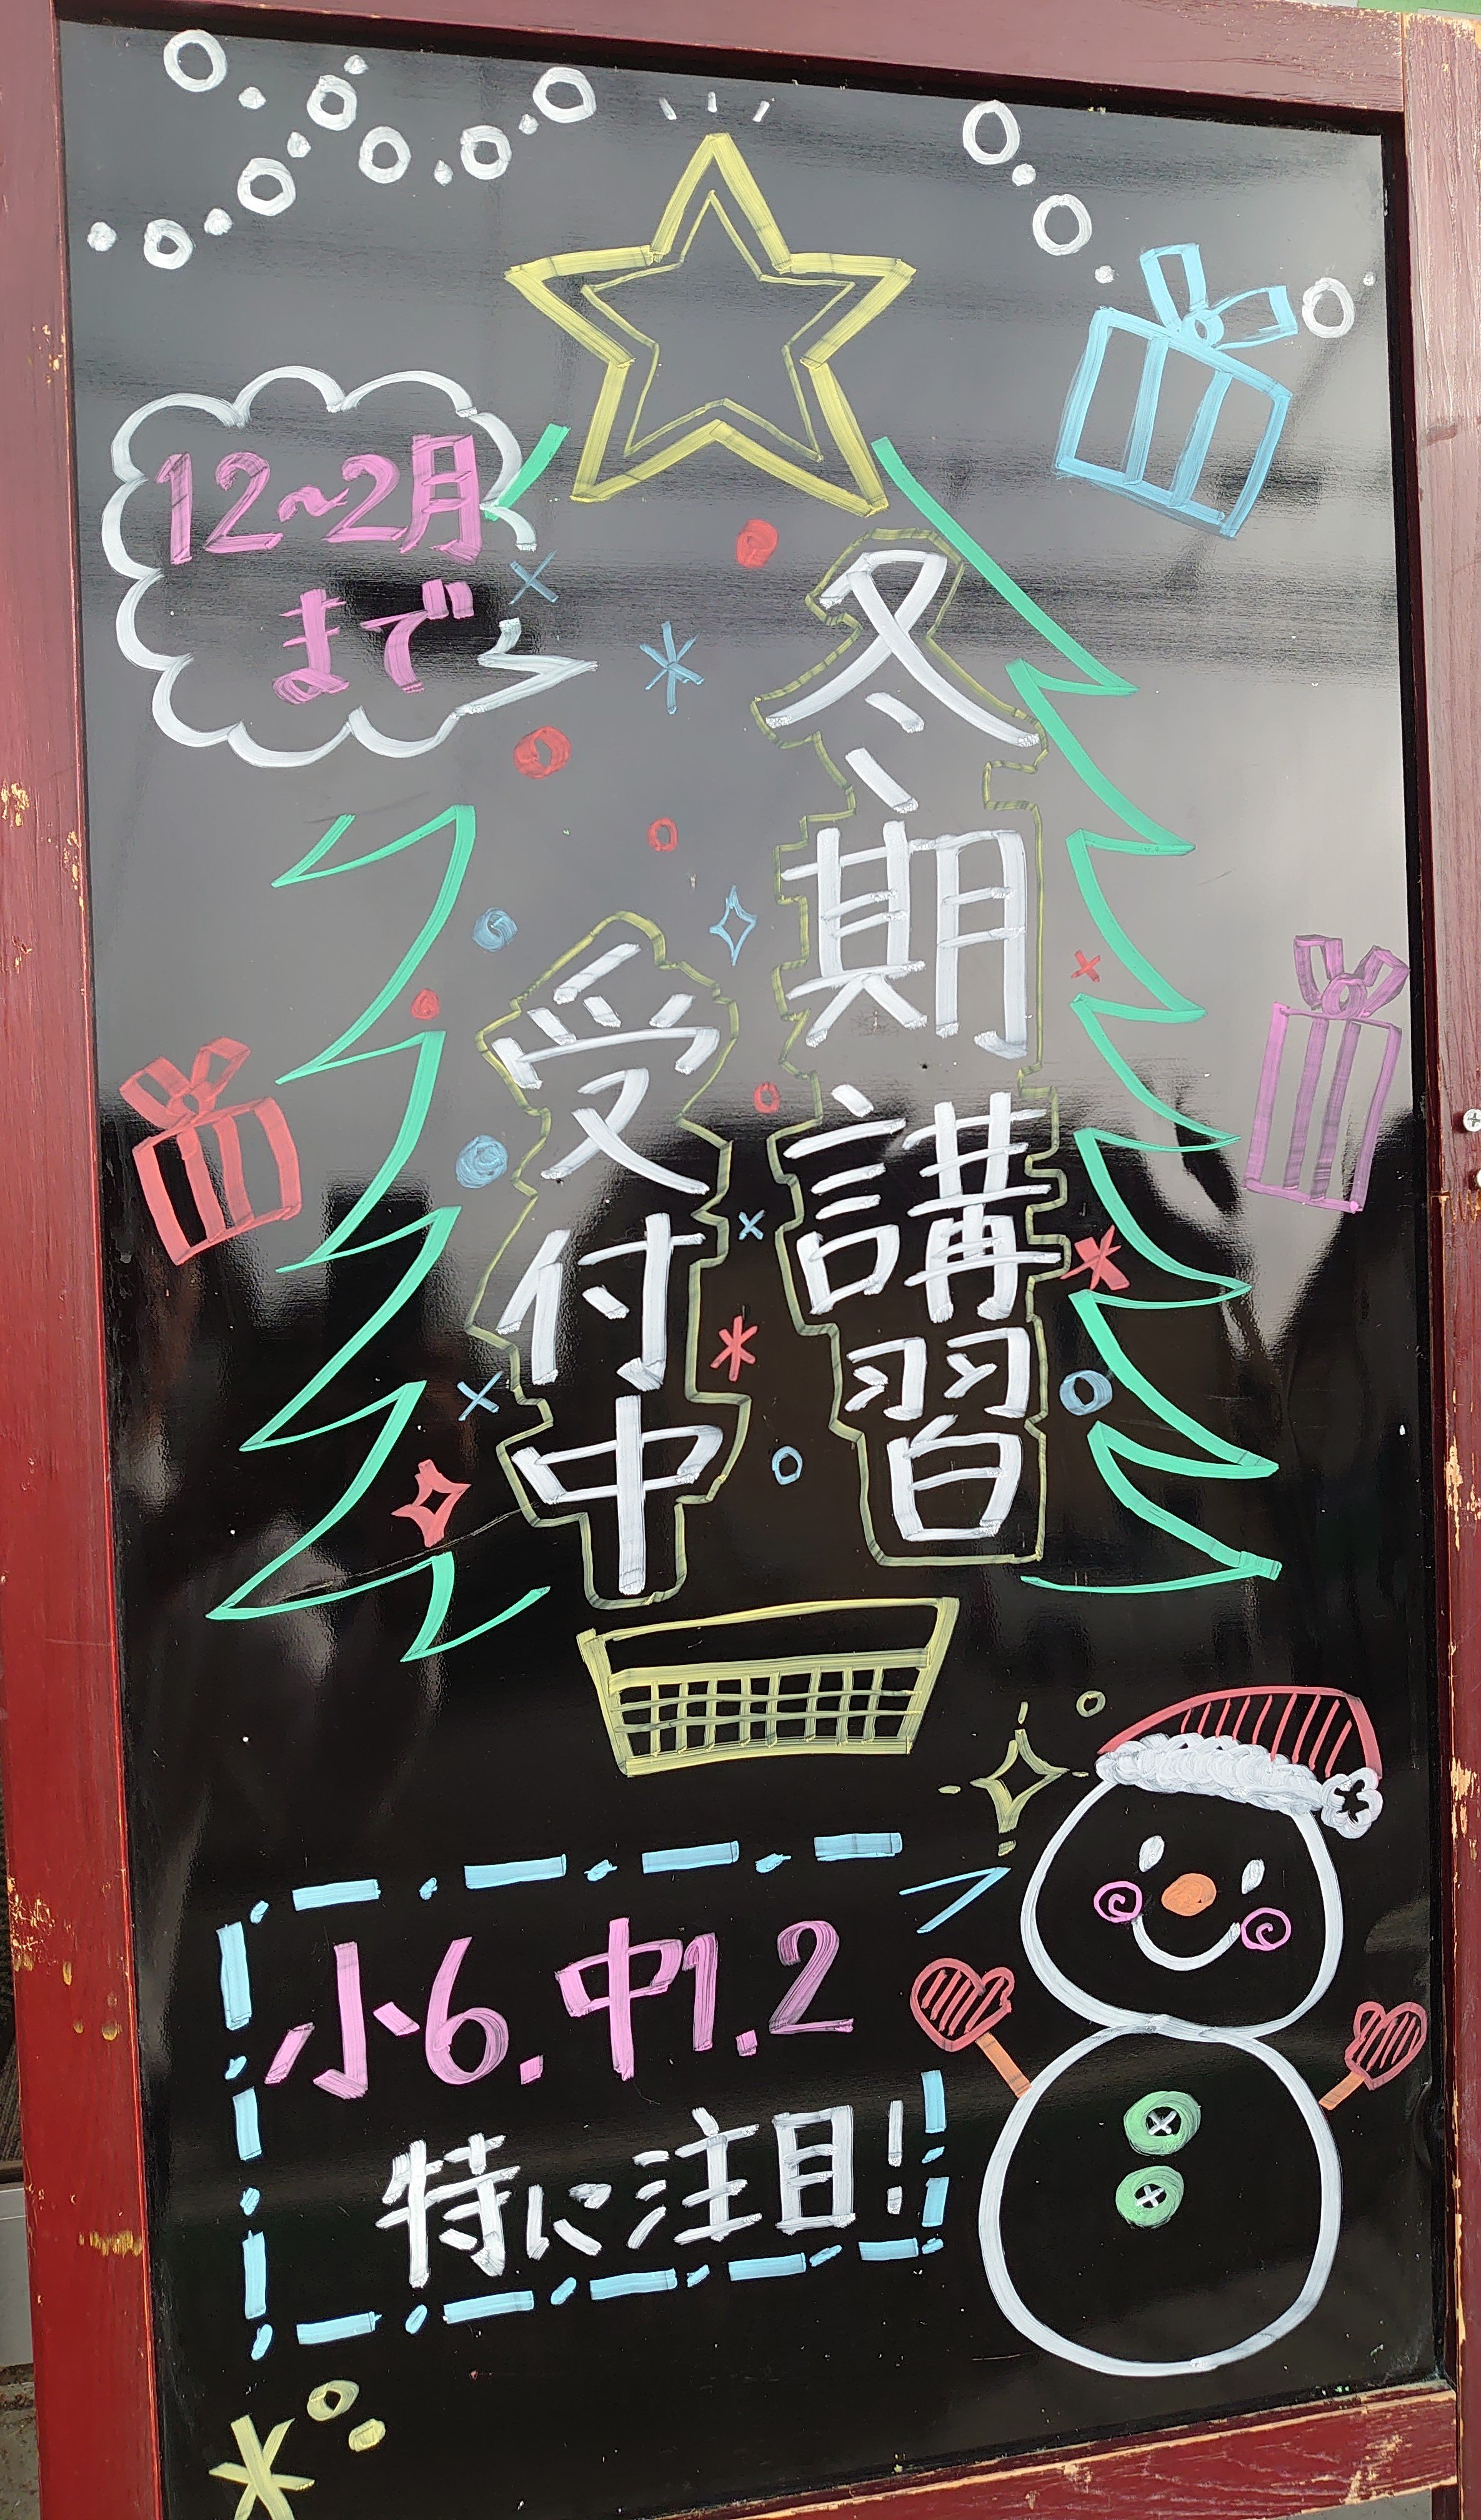 12~2月
まで
冬期講習
受付中
小6.中1.2
特に注目!!